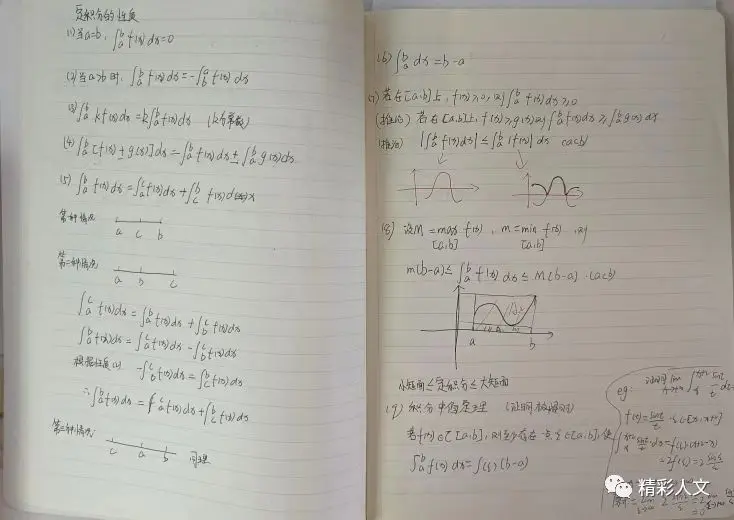 定积分的性质
(1) 当a=b, ∫_a^b f(x)dx=0
(2) 当a>b时, ∫_a^b f(x)dx=-∫_b^a f(x)dx
(3) ∫_a^b kf(x)dx=k∫_a^b f(x)dx (k为常数)
(4) ∫_a^b [f(x)±g(x)]dx=∫_a^b f(x)dx±∫_a^b g(x)dx
(5) ∫_a^b f(x)dx=∫_a^c f(x)dx+∫_c^b f(x)dx
第一种情况
a c b
第二种情况
a b c
∫_a^c f(x)dx=∫_a^b f(x)dx+∫_b^c f(x)dx
∫_a^b f(x)dx=∫_a^c f(x)dx-∫_b^c f(x)dx
根据性质(2) -∫_b^c f(x)dx=∫_c^b f(x)dx
∴∫_a^b f(x)dx=∫_a^c f(x)dx+∫_c^b f(x)dx
第三种情况
c a b 同理
(6) ∫_a^b dx=b-a
(7) 若在[a,b]上, f(x)≥0, 则∫_a^b f(x)dx≥0
(推论) 若在[a,b]上, f(x)≥g(x)则∫_a^b f(x)dx≥∫_a^b g(x)dx
(推论) |∫_a^b f(x)dx|≤∫_a^b |f(x)|dx (a<b)
(8) 设M=max f(x), m=min f(x), 则
[a,b] [a,b]
m(b-a)≤∫_a^b f(x)dx≤M(b-a) (a<b)
a b
小矩面≤定积分≤大矩面
(9) 积分中值定理
若f(x)∈C[a,b], 则至少存在一点ξ∈[a,b], 使
∫_a^b f(x)dx=f(ξ)(b-a)
eg:
f(t)=sint/t ξ∈[x,x+2]
=2f(ξ)=2 sinξ/ξ
精彩人文